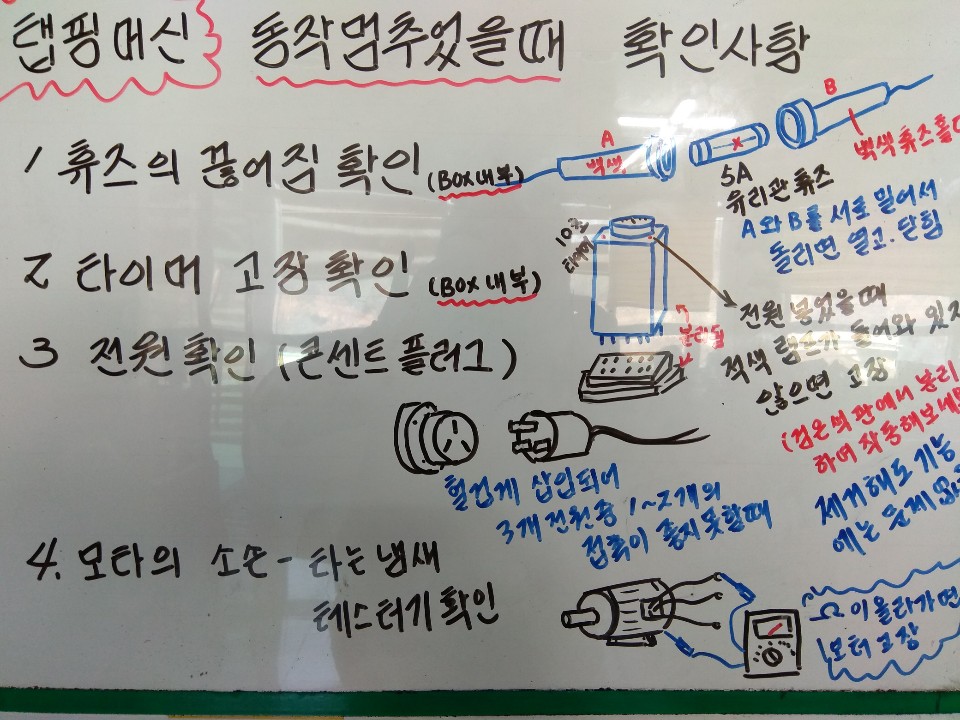 탭핑머신 동작멈추었을때 확인사항
1 휴즈의 끊어짐 확인 (BOX내부)
A
백색
B
백색휴즈홀
5A
유리관휴즈
A와B를 서로 밀어서
돌리면 열고.닫힘
2 타이머 고장확인 (BOX내부)
10초
타이머
분리됨
전원 넣었을때
적색 램프가 들어와 있지
않으면 고장
(검은색판에서 분리
하여 작동해보세
제거해도 기능
에는 문제
3 전원확인 (콘센트플러그)
헐겁게 삽입되어
3개 전원중 1~2개의
접촉이 좋지못할때
4. 모타의 소손 - 타는냄새
테스터기확인
Ω이올라가면
모터고장